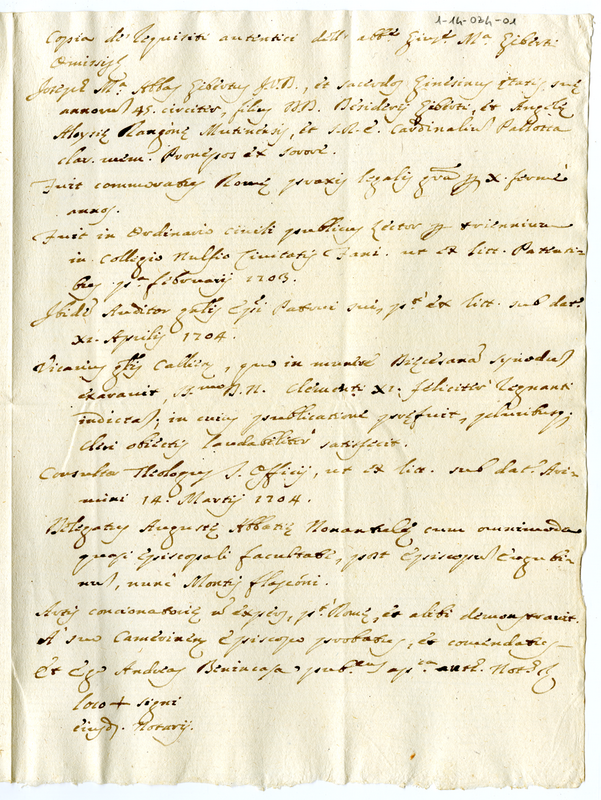 1-14-034-01
Copia de' Requisiti autentici dell' abb.e Gius.e M.a Giberti
Omissis
Joseph M.a Abbas Gibertus J.V.D., et sacerdos Ginesinus etatis suę
annorum 45. circiter, filius DD. Desiderij Giberti, et Angelę
Aloysię Rangonę Mutinensis, et S.R.E. Cardinalium Pallotta
clar. mem. Pronepos ex sorore.
Fuit commoratus Romę praxis legalis gra. p. X. fermè
annos.
Fuit in Ordinario civili publicus Lector p. triennium
in Collegio Nulfio Civitatis Fani. ut ex litt. Patenti-
bus p.a februarij 1703.
Ibidem Auditor Epi Patrui sui, p.t ex litt. sub dat.
XI. Aprilis 1704.
Vicarius Callien. quo in munere Dięcesanam Synodum
exaravit, SS.mo D.N. Clementi XI. feliciter regnanti
indictam, in cuius publicatione pręfuit, pluribusq;
Cleri obiectis laudabiliter satisfecit.
Consultor Theologus S. Officij, ut ex litt. sub dat. Ari-
mini 14. Martij 1704.
Delegatus Augustę Abbatię Nonantulę cum omnimoda
quasi Episcopali facultate, post Episcopum Eugubi-
num, nunc Montis flasconi.
Artis concionatorię n. expers, p.t Romę, et alibi demonstravit.
A' suo Camerinen. Episcopo probatus, et comendatus
Et Ego Andreas Benincasa pub.cus ap.ca auth. Not.s
loco + signi
eiusd. Notarij.